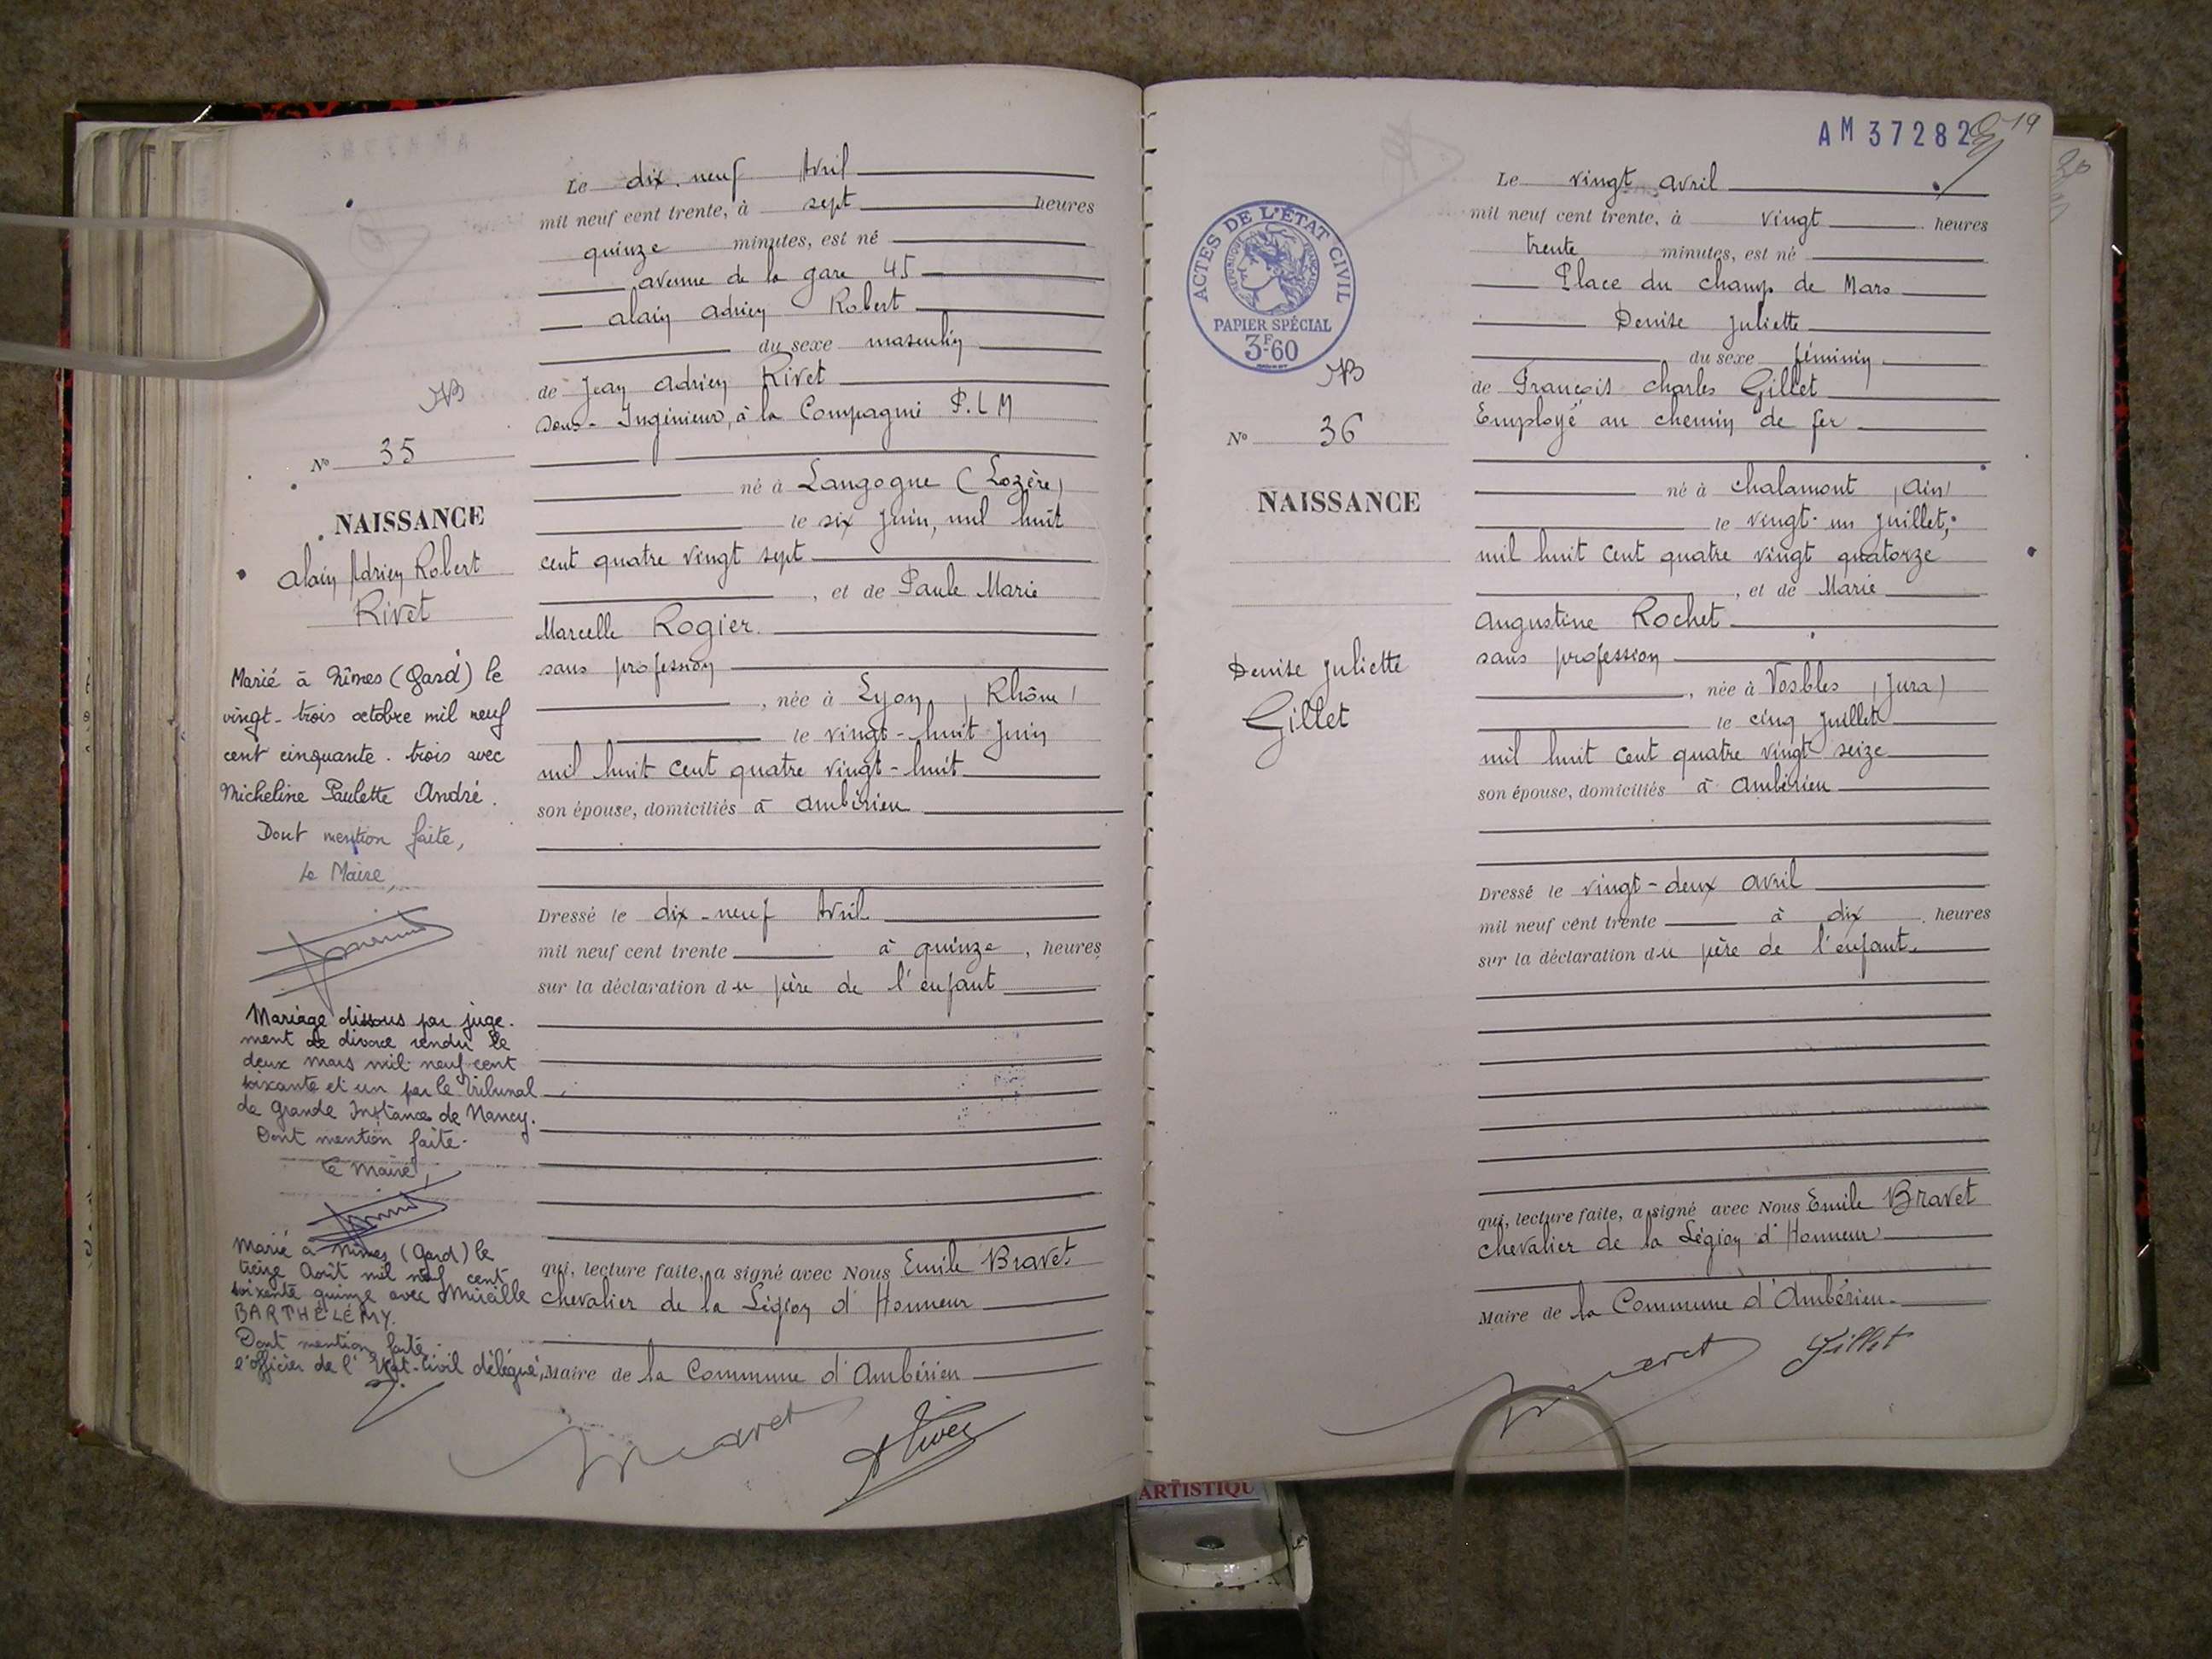 Le dix-neuf Avril
mil neuf cent trente, à sept heures
quinze minutes, est né
avenue de la gare 45
Alain Adrien Robert
du sexe masculin
de Jean Adrien Rivet
sous-Ingénieur, à la Compagnie P.L.M
né à Langogne (Lozère)
le six Juin, mil huit
cent quatre vingt sept
, et de Paule Marie
Marcelle Rogier.
sans profession
, née à Lyon (Rhône)
le vingt-huit Juin
mil huit cent quatre vingt-huit
son épouse, domiciliés à Ambérieu
Dressé le dix-neuf Avril
mil neuf cent trente à quinze, heures
sur la déclaration du père de l'enfant
qui, lecture faite, a signé avec Nous Emile Bravet
Chevalier de la Légion d'Honneur
Maire de la Commune d'Ambérieu
Bravet
Rivet
N° 35
NAISSANCE
Alain Adrien Robert
Rivet
Marié à Nîmes (Gard) le
vingt-trois octobre mil neuf
cent cinquante-trois avec
Micheline Paulette André.
Dont mention faite,
Le Maire,
Mariage dissous par juge-
ment de divorce rendu le
deux mars mil neuf cent
soixante et un par le Tribunal
de Grande Instance de Nancy.
Dont mention faite.
Le Maire,
Marié à Nîmes (Gard) le
treize Août mil neuf cent
soixante quinze avec Mireille
BARTHÉLÉMY.
Dont mention faite.
l'officier de l'Etat-Civil délégué,
AM 37282
19
ACTES DE L'ÉTAT CIVIL
RÉPUBLIQUE FRANÇAISE
PAPIER SPÉCIAL
3F.60
N° 36
NAISSANCE
Denise Juliette
Gillet
Le vingt avril
mil neuf cent trente, à vingt heures
trente minutes, est né
Place du champ de Mars
Denise Juliette
du sexe féminin
de François Charles Gillet
Employé au chemin de fer
né à Chalamont (Ain)
le vingt-un Juillet,
mil huit cent quatre vingt quatorze
, et de Marie
Augustine Rochet
sans profession
, née à Vosbles (Jura)
le cinq Juillet
mil huit cent quatre vingt seize
son épouse, domiciliés à Ambérieu
Dressé le vingt-deux avril
mil neuf cent trente à dix heures
sur la déclaration du père de l'enfant.
qui, lecture faite, a signé avec Nous Emile Bravet
Chevalier de la Légion d'Honneur
Maire de la Commune d'Ambérieu.
Bravet
Gillet
20
ARTISTIQU